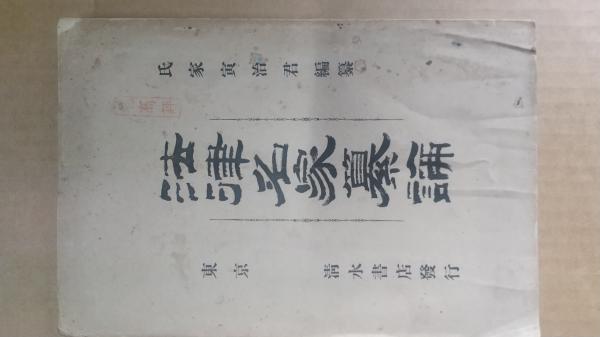 氏家寅治君編纂
法律名家纂論
東京 清水書店發行